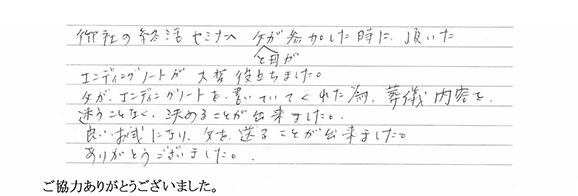 御社の終活セミナへ 父が参加した時に、頂いた
と母が
エンディングノートが 大変役立ちました。
父が、エンディングノートを、書いていてくれた為、葬儀内容を、
迷うことなく、決めることが出来ました。
良いお式になり、父を、送ることが出来ました。
ありがとうございました。
ご協力ありがとうございました。